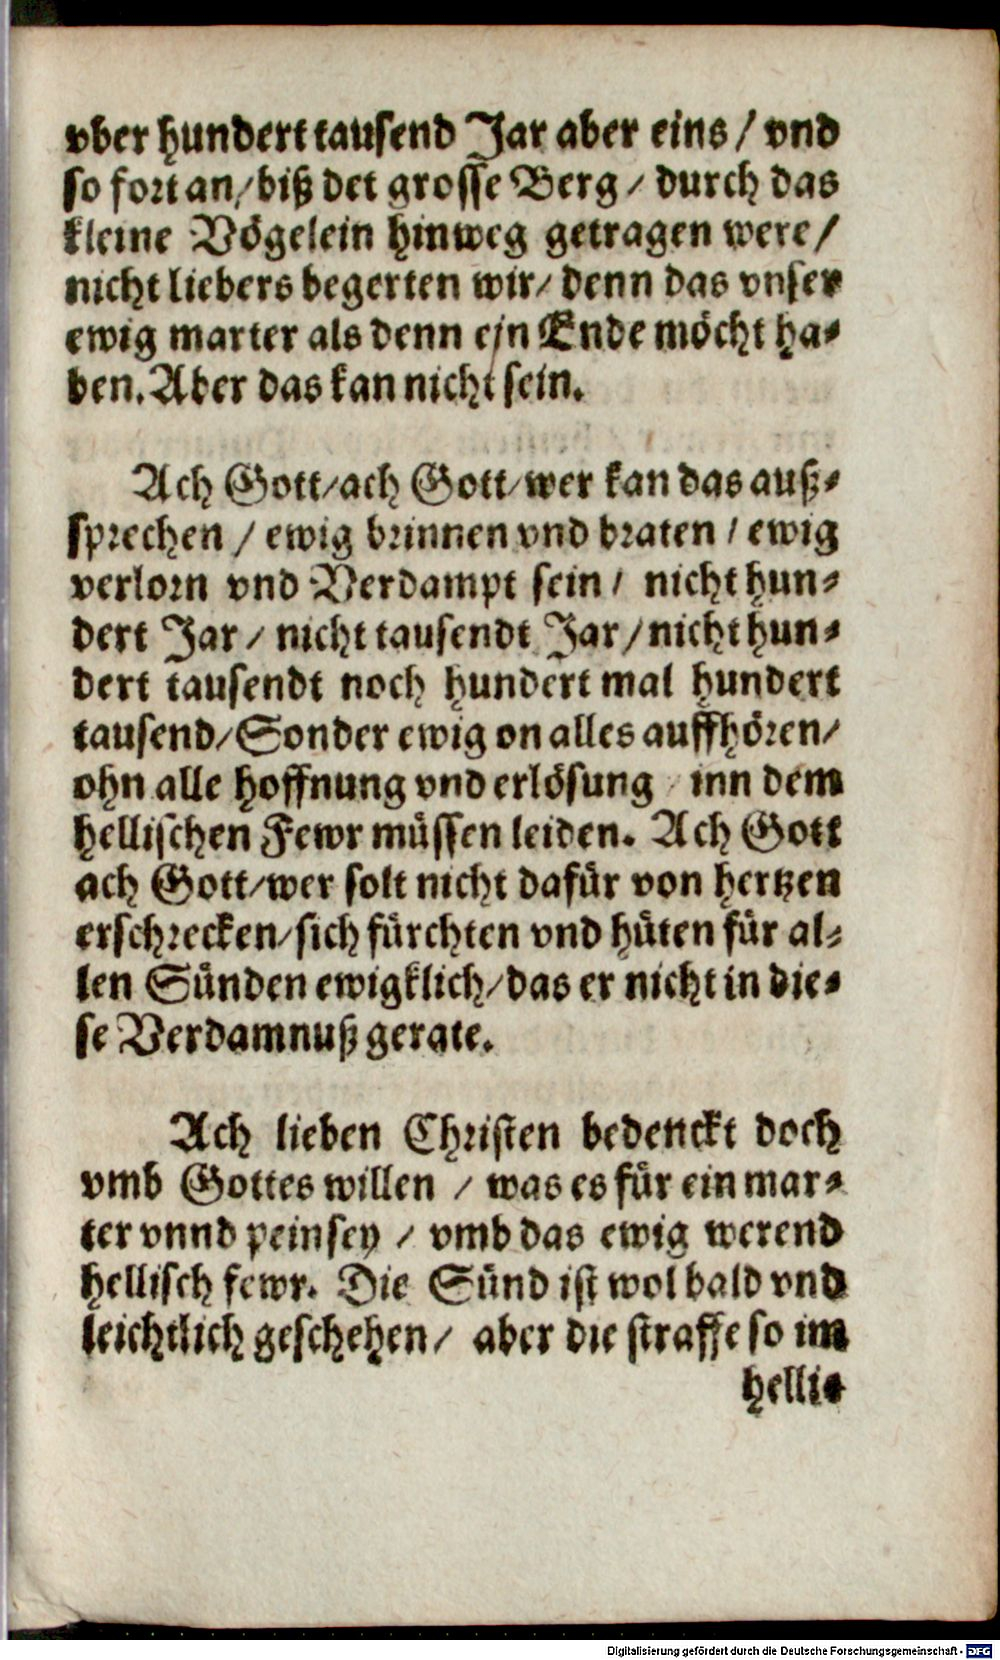 vber hundert tausend Jar aber eins / vnd
so fort an / biß det grosse Berg / durch das
kleine Vögelein hinweg getragen were /
nicht liebers begerten wir / denn das vnser
ewig marter als denn ein Ende möcht ha-
ben. Aber das kan nicht sein.
Ach Gott / ach Gott / wer kan das auß-
sprechen / ewig brinnen vnd braten / ewig
verlorn vnd Verdampt sein / nicht hun-
dert Jar / nicht tausendt Jar / nicht hun-
dert tausendt noch hundert mal hundert
tausend / Sonder ewig on alles auffhören /
ohn alle hoffnung vnd erlösung / inn dem
hellischen Fewr müssen leiden. Ach Gott
ach Gott / wer solt nicht dafür von hertzen
erschrecken / sich fürchten vnd hüten für al-
len Sünden ewigklich / das er nicht in die-
se Verdamnuß gerate.
Ach lieben Christen bedenckt doch
vmb Gottes willen / was es für ein mar-
ter vnnd pein sey / vmb das ewig werend
hellisch fewr. Die Sünd ist wol bald vnd
leichtlich geschehen / aber die straffe so im
helli-
Digitalisierung gefördert durch die Deutsche Forschungsgemeinschaft - DFG